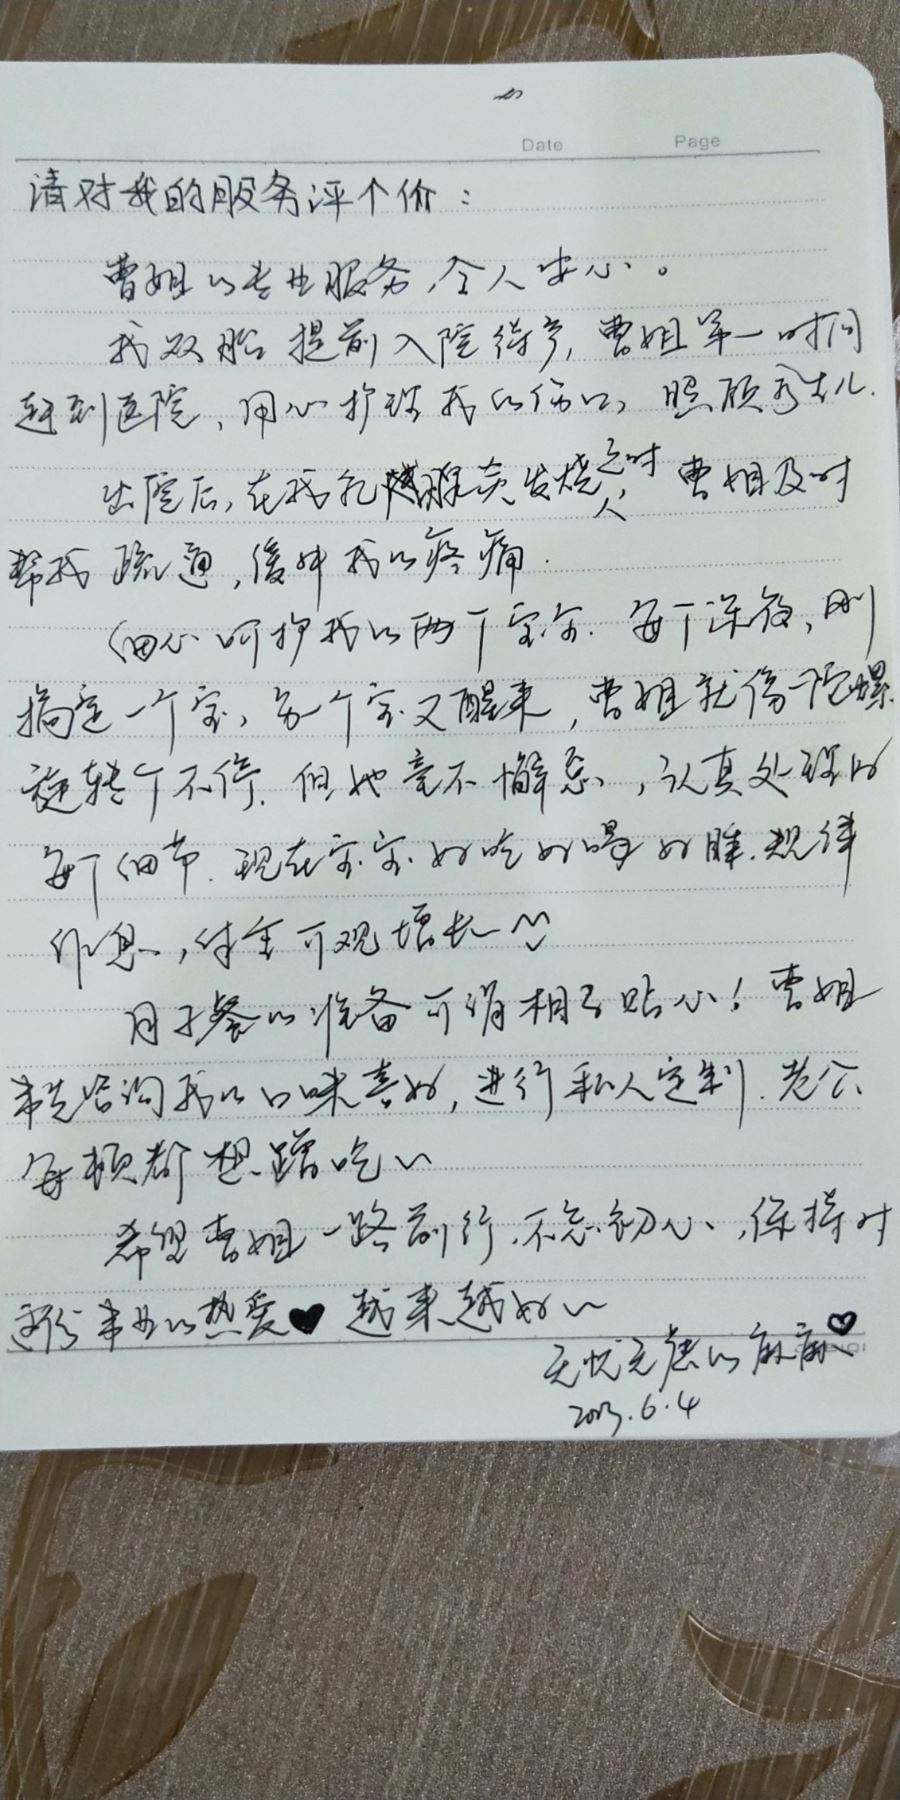 Date Page
请对我的服务评个价：
曹姐的专业服务，令人安心。
我双胎提前入院待产，曹姐第一时间
赶到医院，用心护理我的伤口，照顾新生儿.
出院后，在我乳腺炎发烧之时 曹姐及时
帮我疏通，缓解我的疼痛.
细心呵护我的两个宝宝. 每个深夜，刚
搞定一个宝，另一个宝又醒来，曹姐就像一陀螺
旋转个不停. 但她毫不懈怠，认真处理好
每个细节. 现在宝宝好吃好喝好睡. 规律
作息，体重可观增长~
月子餐的准备可谓相当贴心！曹姐
事先咨询我的口味喜好，进行私人定制. 老公
每顿都想蹭吃~
希望曹姐一路前行，不忘初心，保持对
这份事业的热爱♥ 越来越好~
无忧无虑的麻麻♡
2023.6.4